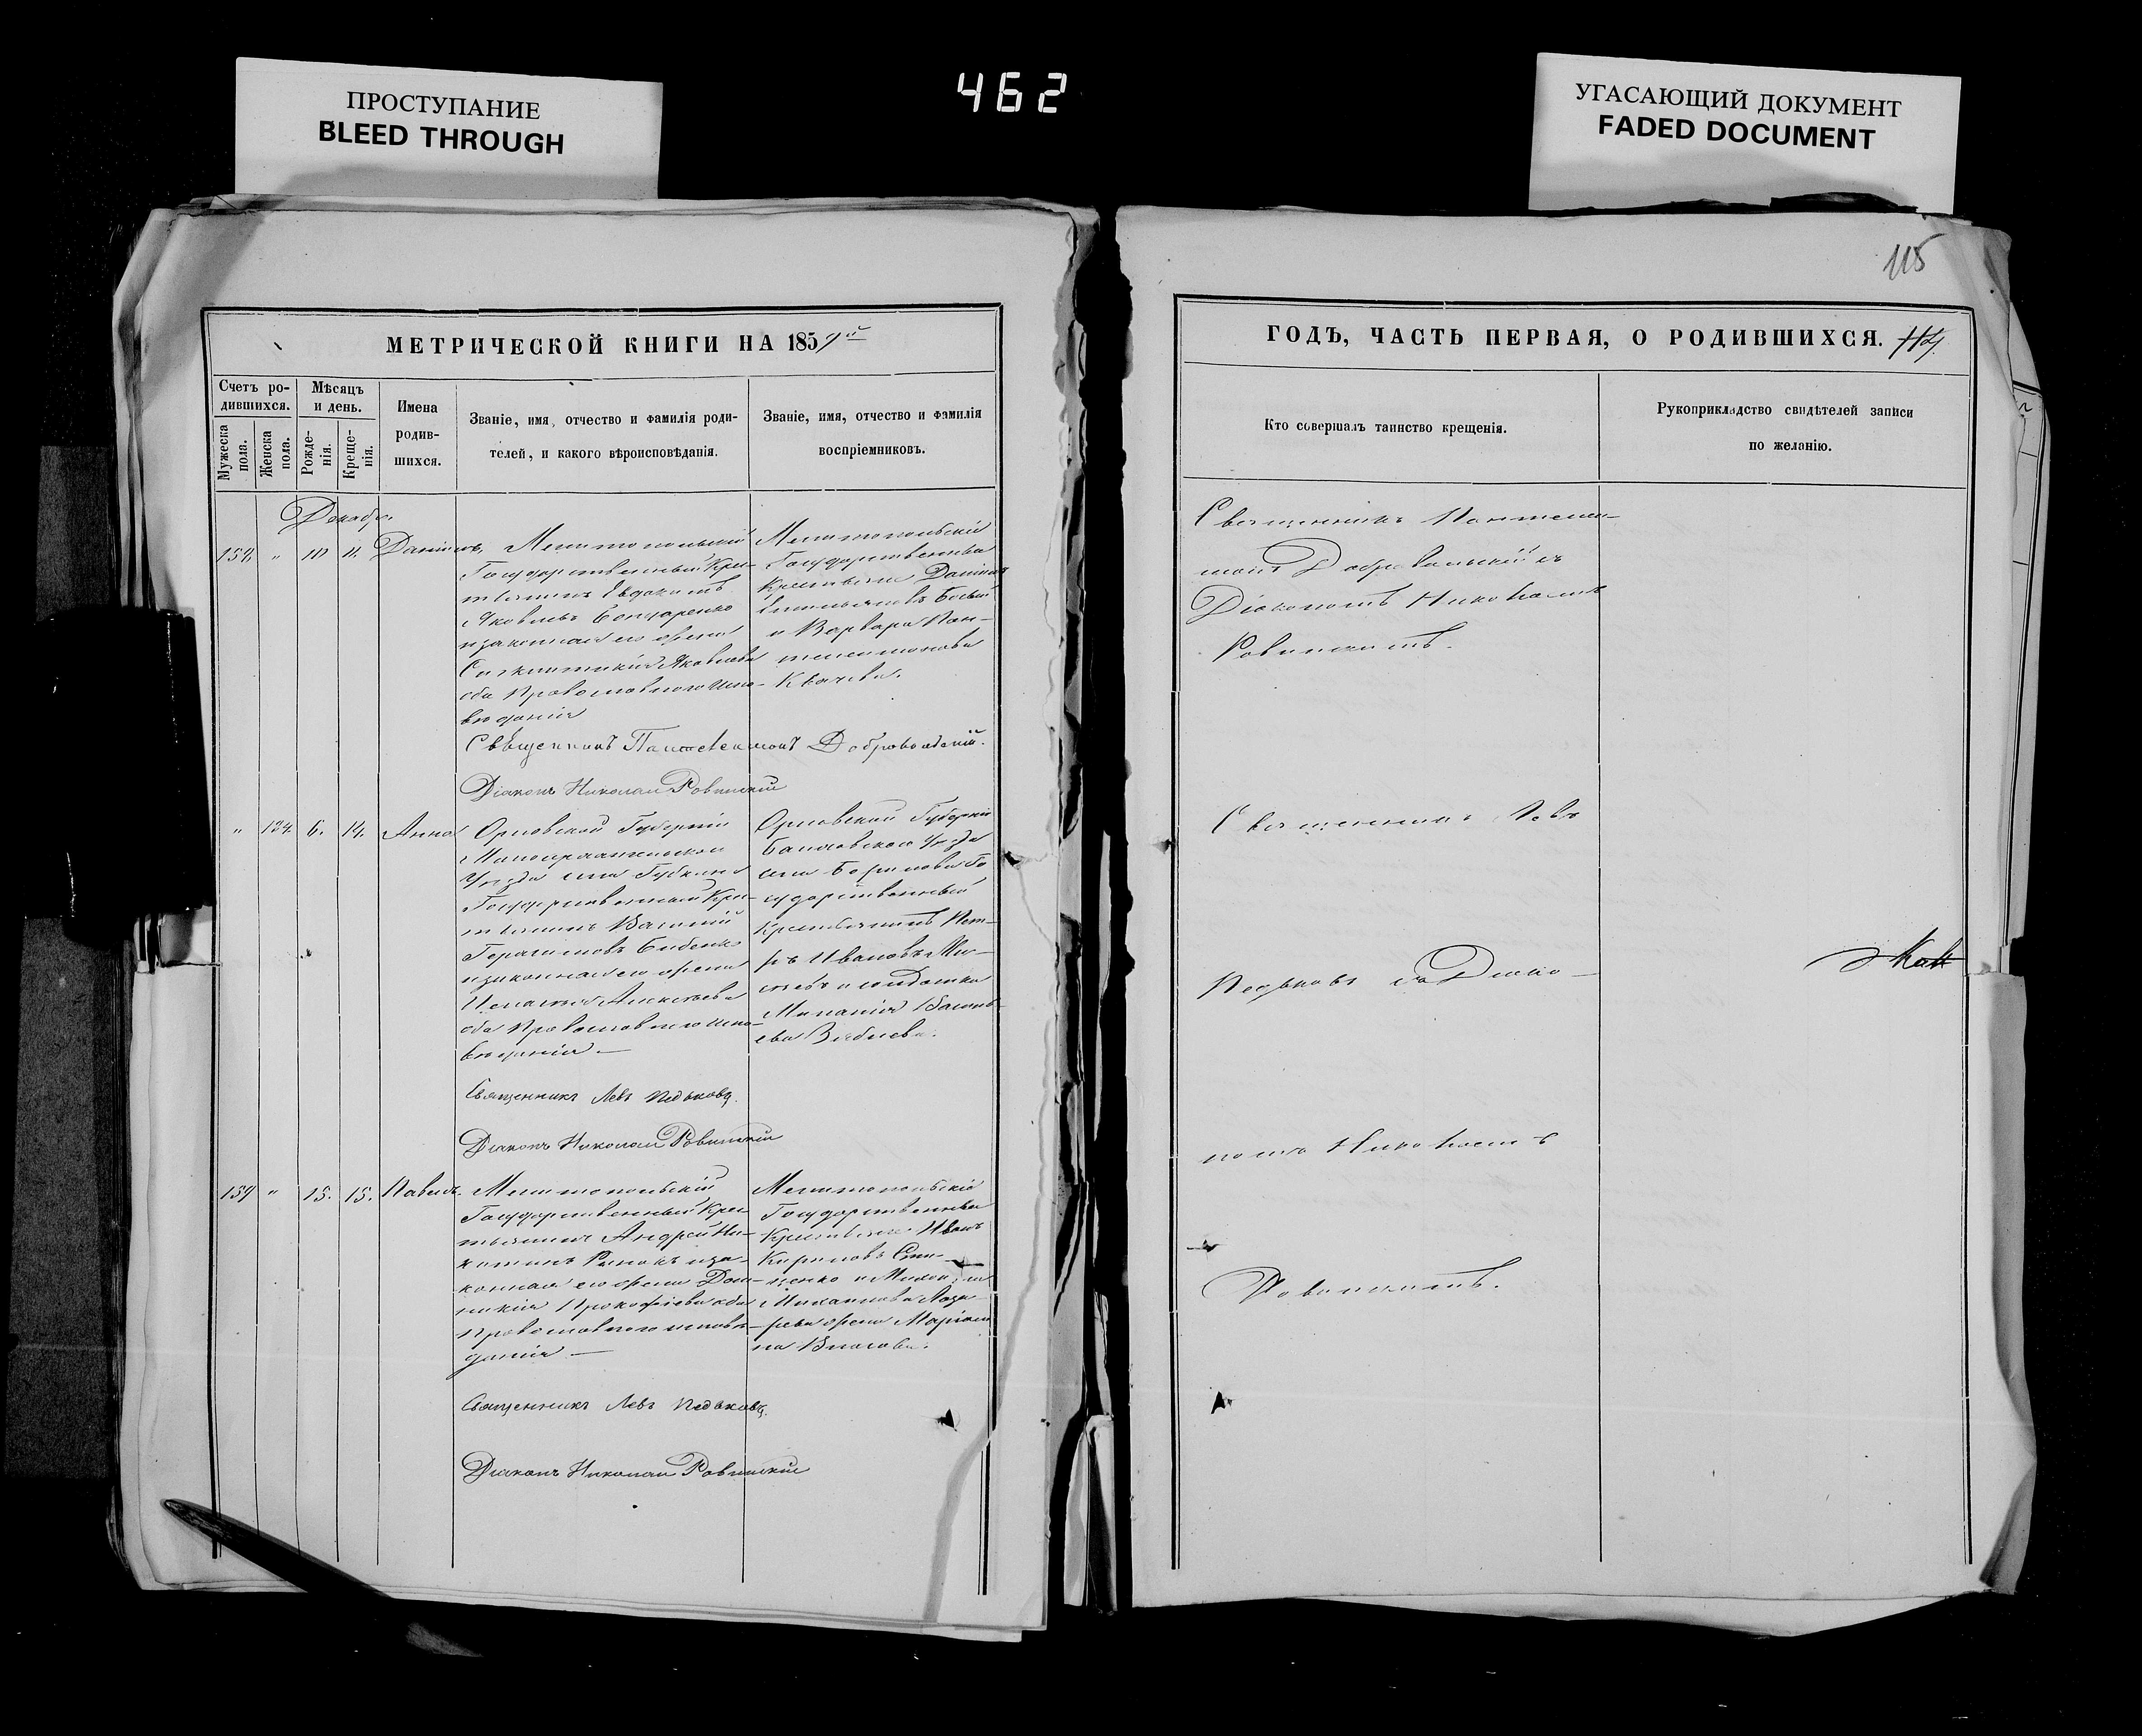 ПРОСТУПАНИЕ
BLEED THROUGH
462
УГАСАЮЩИЙ ДОКУМЕНТ
FADED DOCUMENT
МЕТРИЧЕСКОЙ КНИГИ НА 1859й
Счетъ ро-
дившихся.
Мѣсяцъ
и день.
Мужеска
пола.
Женска
пола.
Рожде-
нія.
Креще-
нія.
Имена
родив-
шихся.
Званіе, имя, отчество и фамилія роди-
телей, и какого вѣроисповѣданія.
Званіе, имя, отчество и фамилія
воспріемниковъ.
Декабрь
Даніилъ
Мелитопольскій
Государственный Кре-
стьянинъ Евдокимъ
Яковлевъ Бондаренко
и законная его жена
Яковлева
оба Православнаго испо-
вѣданія
Мелитопольскіе
Государственные
Крестьяне Даніилъ
и Варвара Пан-
телеимонова
Священникъ Пантелеимонъ Добровольскій.
Діаконъ Николай Ровинскій
" 124. 6. 14. Анна
Орловской Губерніи
Малоархангельскаго
Уѣзда села Губкина
Государственный Кре-
стьянинъ Василій
Герасимовъ
и законная его жена
Пелагія Алексѣева
оба Православнаго испо-
вѣданія —
Орловской Губерніи
Болховскаго Уѣзда
села Борилова Го-
сударственный
Крестьянинъ Пет-
ръ Ивановъ
и солдатка
Меланія Василь-
ева
Священникъ Левъ Педьковъ.
Діаконъ Николай Ровинскій
159 " 15. 15. Павелъ.
Мелитопольскій
Государственный Кре-
стьянинъ Андрей Ни-
китинъ и за-
конная его жена Дом-
никія Прокофіева оба
Православнаго исповѣ-
данія —
Мелитопольскіе
Государственные
Крестьяне Иванъ
Кириловъ
Михайлова Лаза-
рева жена Маріам-
на Власова.
Священникъ Левъ Педьковъ.
Діаконъ Николай Ровинскій
115
ГОДЪ, ЧАСТЬ ПЕРВАЯ, О РОДИВШИХСЯ.
Кто совершалъ таинство крещенія.
Рукоприкладство свидѣтелей записи
по желанію.
Священникъ Пантелеи-
монъ Добровольскій съ
Діакономъ Николаемъ
Ровинскимъ.
Священникъ Левъ
Педьковъ съ Діако-
номъ Николаемъ
Ровинскимъ.